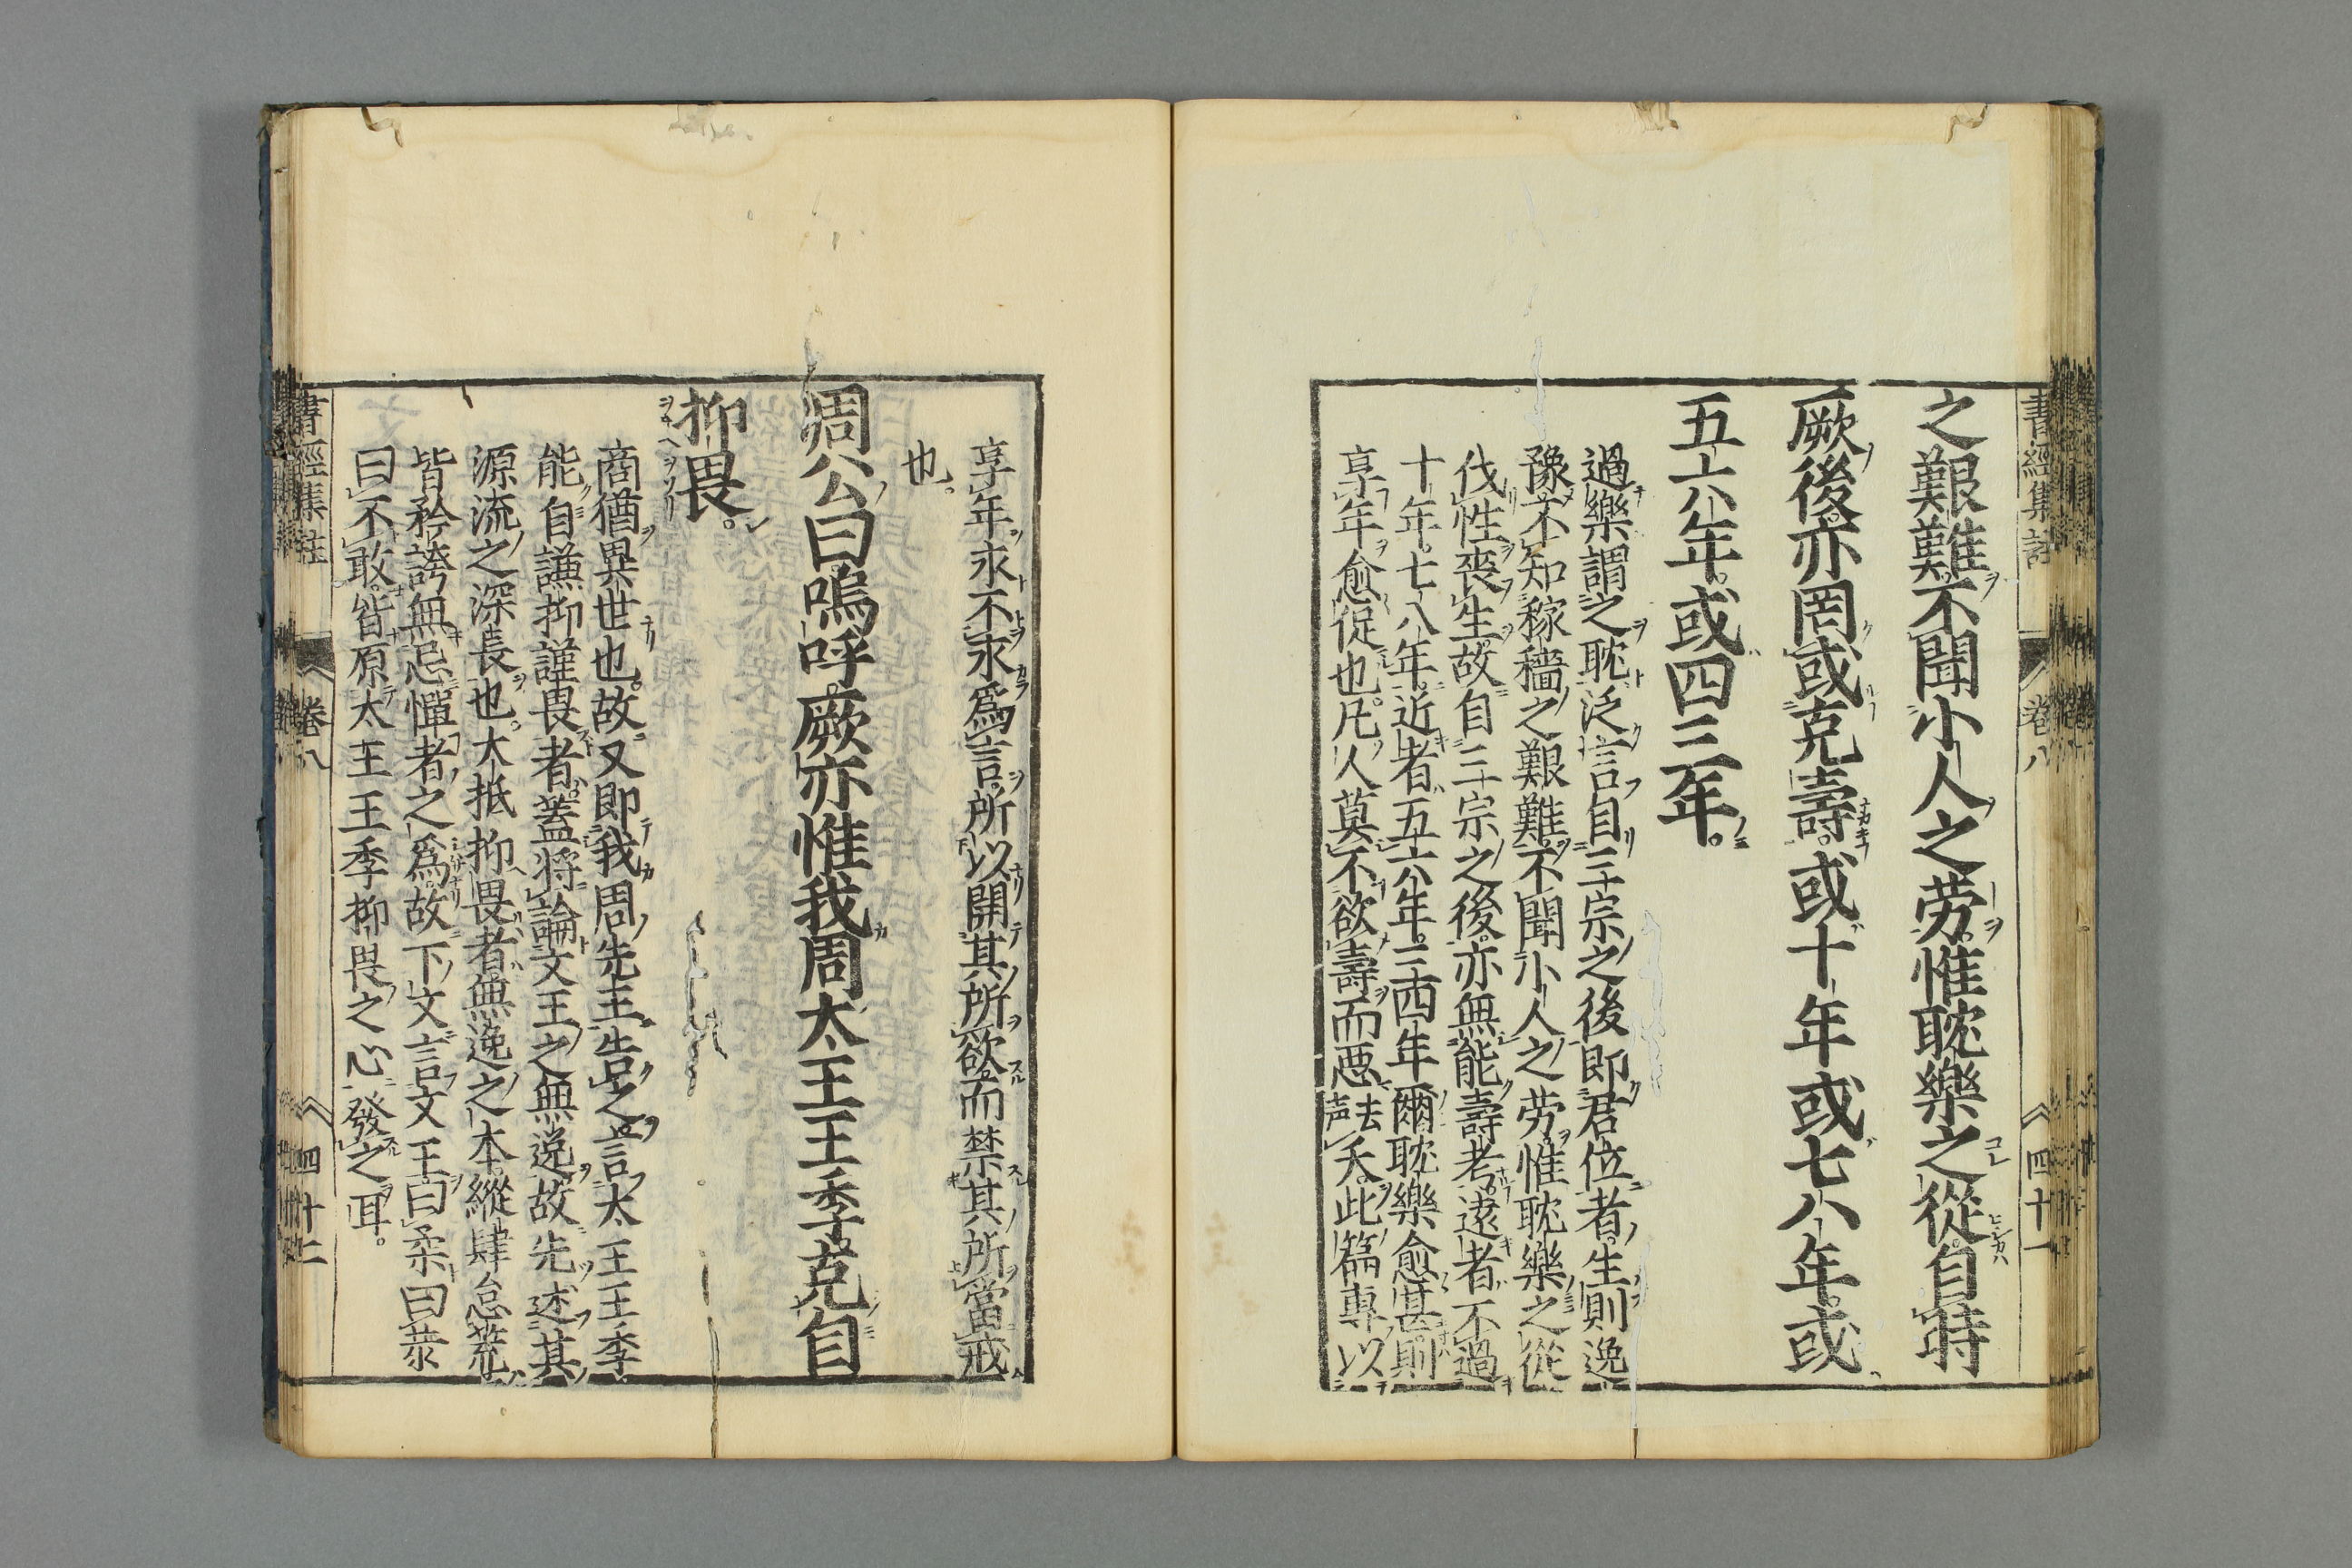 書經集註 卷八 四十一
之艱難。不聞小人之劳。惟耽樂之從。自時
厥後。亦罔或克壽。或十年或七八年。或
五六年。或四三年。
過樂謂之耽泛言自三宗之後即君位者。生則逸
豫不知稼穡之艱難。不聞小人之劳。惟耽樂之從
伐性喪生。故自三宗之後。亦無能壽考。遠者不過
十年。七八年。近者五六年。三四年爾耽樂愈甚則
享年愈促也。凡人莫不欲壽而惡去声夭。此篇專以
享年永不永爲言。所以開其所欲而禁其所當戒
也。
周公曰嗚呼。厥亦惟我周太王王季。克自
抑畏。
商猶異世也。故又即我周先王告之言太王王季
能自謙抑謹畏者。蓋將論文王之無逸。故先述其
源流之深長也。大抵抑畏者無逸之本。縱肆怠荒
皆矜誇無忌憚者之爲。故下文言文王曰柔曰恭
曰不敢。皆原太王王季抑畏之心發之耳。
書經集註 卷八 四十二